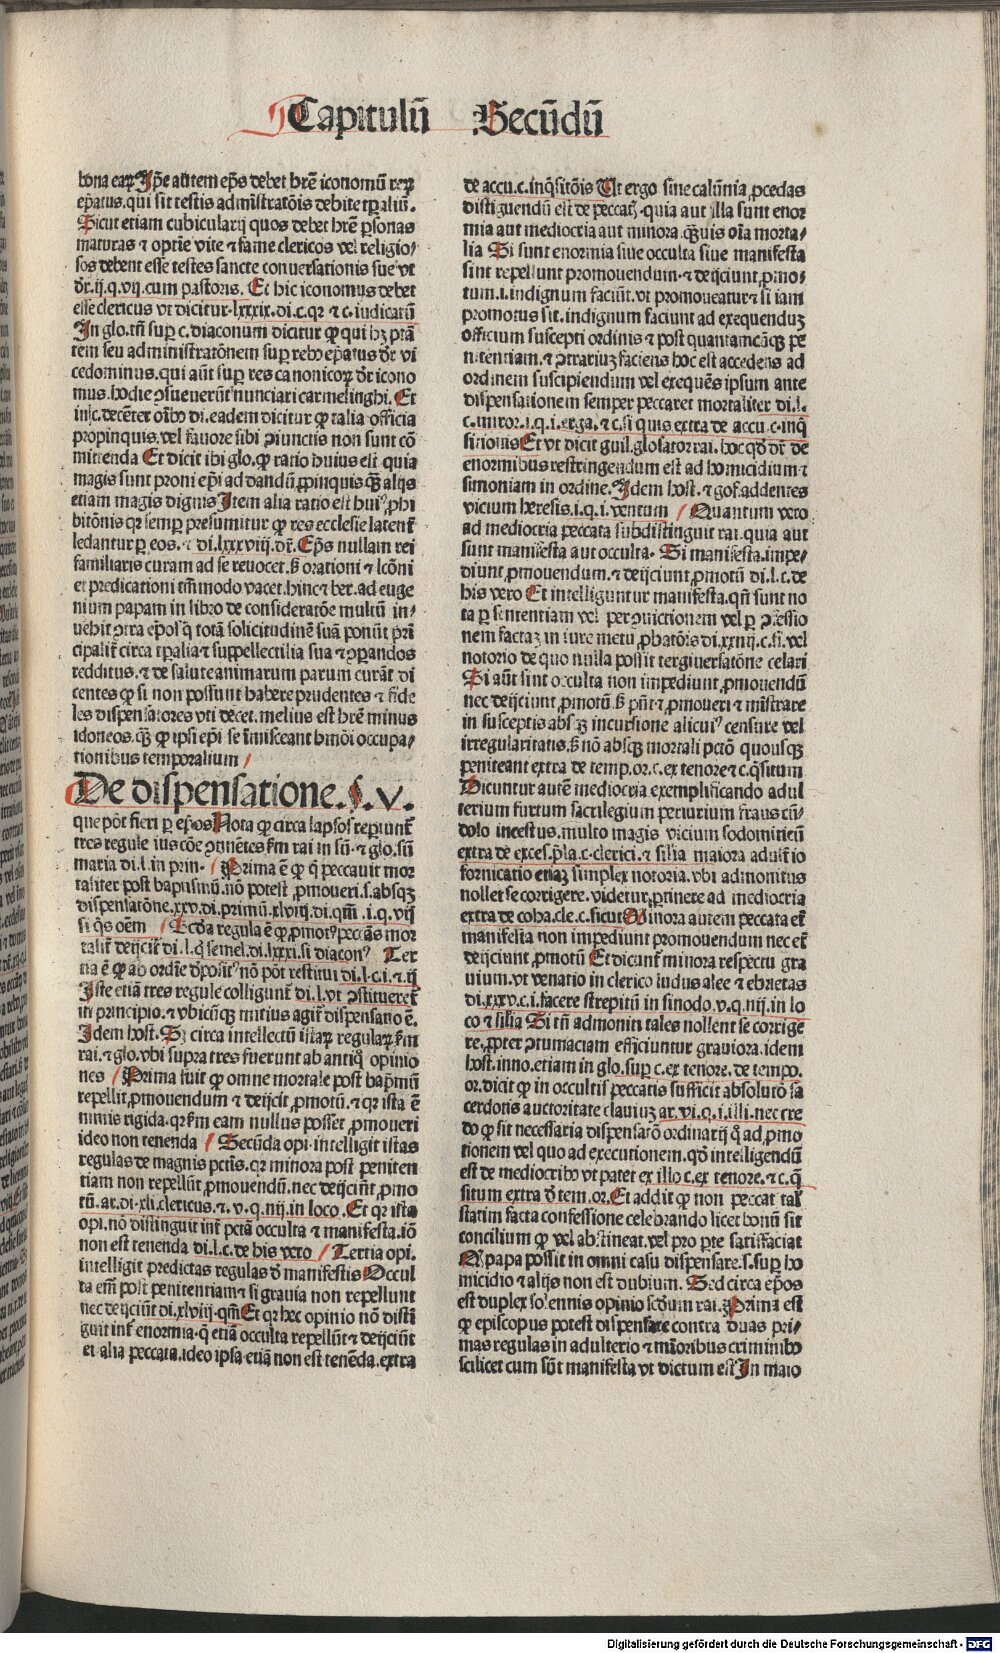 Capitulū Secūdū
bona eaꝝ Ip̄e autem ep̄s debet hr̄e iconomū reꝝ
ep̄atus. qui sit testis admīstratōis debite tp̄aliū.
Sicut etiam cubicularij quos debet hr̄e p̄sonas
maturas & optīe vite & fame clericos vel religio⸗
sos debent esse testes sancte conuersationis sue vt
dr̄. ij. q. vij. cum pastoris. Et hic iconomus debet
esse clericus vt dicitur. lxxxix. di. c. qr & c. iudicatū
In glo. tn̄ sup̱ c. diaconum dicitur ꝙ qui hꝫ ptā
tem seu administratōnem sup̱ rebꝰ ep̄atus dr̄ vi
cedominus. qui aūt sup̱ res canonicoꝝ dr̄ icono
mus. hodie ꝯsueuerūt nunciari carmelinghi. Et
in. c. decēter oībꝰ di. eadem dicitur ꝙ talia officia
propinquis. vel fauore sibi ꝯiunctis non sunt cō
mittenda Et dicit ibi glo. ꝙ ratio huius est. quia
magis sunt proni ep̄i ad dandū ꝓpinquis. qꝫ alijs
etiam magis dignis Item alia ratio est huiꝰ ꝓhi
bitōnis qr semp̱ presumitur ꝙ res ecclesie latent̄
ledantur p̱ eos. & di. lxxxviij. dr̄. Ep̄s nullam rei
familiaris curam ad se reuocet. sꝫ orationi & lcōni
et predicationi tm̄modo vacet. hinc & ber. ad euge
nium papam in libro de consideratōe multū in⸗
uehit ꝯtra ep̄os q̇ totā solicitudinē suā ponūt pri
cipalit̄ circa tp̄alia & suppellectilia sua & ꝯparandos
redditus. & de salute animarum parum curāt di
centes ꝙ si non possunt habere prudentes & fide
les dispensatores vti decet. melius est hr̄e minus
idoneos. qꝫ ꝙ ipsi ep̄i se īmisceant hmōi occupa⸗
tionibus temporalium
De dispensatione. §. v.
que pōt fieri p̱ ep̄os Nota ꝙ circa lapsos reꝑiunt̄
tres regule ius cōe ꝯtinētes fm̄ rai in sū. & glo. sū
maria di. l. in prin. Prima ē ꝙ q̇ peccauit mor
taliter post baptismū. nō potest ꝓmoueri. s. absqꝫ
dispensatōne. xxv. di. primū. xlviij. di. qm̄. i. q. vij
si q̇s oēm Scd̄a regula ē ꝙ ꝓmotꝰ peccās mor
talit̄ deijcit̄ di. l. q̇ semel. di. lxxxi. si diaconꝰ Ter
tia ē ꝙ ab ordīe dr̄positꝰ nō pōt restitui di. l. c. i. & ij
Iste etiā tres regule colligunt̄ di. l. vt ꝯstitueret̄
in principio. & vbicūqꝫ mitius agit̄ dispensatio ē.
Idem host. Sꝫ circa intellectū istaꝝ regulaꝝ fm̄
rai. & glo. vbi supra tres fuerunt ab antiq̇ opinio
nes Prima fuit ꝙ omne mortale post bap̄mū
repellit ꝓmouendum & deijcit ꝓmotū. & qr ista ē
nimis rigida. qr fm̄ eam nullus posset ꝓmoueri
ideo non tenenda Secūda opi. intelligit istas
regulas de magnis pctīs. qr minora post peniten
tiam non repellūt ꝓmouendū. nec deijciūt ꝓmo
tū. ar. di. xli. clericus. & v. q. iiij. in loco. Et qr ista
opi. nō distinguit int̄ pctā occulta & manifesta. iō
non est tenenda di. l. c. de his vero Tertia opi.
intelligit predictas regulas d̄ manifestis Occul
ta em̄ post penitentiam & si grauia non repellunt
nec deijciūt di. xlviij. qm̄ Et qr hec opinio nō disti
guit int̄ enormia. q̇ etiā occulta repellūt & deijciūt
et alia peccata. ideo ipsa etiā non est tenēda. extra
de accu. c. inq̇sitōis Vt ergo sine calūnia ꝓcedas
distiguendū est de peccatꝭ. quia aut illa sunt enor
mia aut mediocria aut minora. qꝫuis oīa morta⸗
lia Si sunt enormia siue occulta siue manifesta
sint repellunt promouendum. & deijciunt ꝓmo⸗
tum. i. indignum faciūt. vt promoueatur & si iam
promotus sit. indignum faciunt ad exequenduꝫ
officium suscepti ordinis & post quantamcūqꝫ pe
nitentiam. & ꝯtrariuꝫ faciens hoc est accedens ad
ordinem suscipiendum vel exequēs ipsum ante
dispensationem semper peccaret mortaliter di. l.
c. miror. i. q. i. erga. & c. si quis extra de accu. c. inq̇
sitionis Et vt dicit guil. glosator rai. hoc qd̄ dr̄ de
enormibus restringendum est ad homicidium &
simoniam in ordine. Idem host. & gof. addentes
vicium heresis. i. q. i. ventum Quantum vero
ad mediocria peccata subdistinguit rai. quia aut
sunt manifesta aut occulta. Si manifesta. impe⸗
diunt ꝓmouendum. & deijciunt ꝓmotū di. l. c. de
his vero Et intelliguntur manifesta. qn̄ sunt no
ta p̱ sententiam vel per ꝯuictionem vel p̱ ꝯfessio
nem factaꝫ in iure metu ꝓbatōis di. xxiij. c. si. vel
notorio de quo nulla possit tergiuersatōne celari
Si aūt sint occulta non impediunt ꝓmouendū
nec deijciunt ꝓmotū. sꝫ pn̄t & ꝓmoueri & mīstrare
in susceptis absqꝫ incursione alicuiꝰ censure vel
irregularitatis. sꝫ nō absqꝫ mortali pctō quousqꝫ
peniteant extra de temp. or. c. ex tenore & c. q̇situm
Dicuntur autē mediocria exemplificando adul
terium furtum sacrilegium periurium fraus cū⸗
dolo incestus. multo magis vicium sodomiticū
extra de exces. p̄la. c. clerici. & silia maiora adult̄io
fornicatio etiaꝫ simplex notoria. vbi admonitus
nollet se corrigere. videtur ꝑtinere ad mediocria
extra de coha. cle. c. sicut Minora autem peccata et̄
manifesta non impediunt promouendum nec et̄
deijciunt ꝓmotū Et dicunt̄ minora respectu gra
uium. vt venatio in clerico ludus alee & ebrietas
di. xxxv. c. i. facere strepitū in sinodo. v. q. iiij. in lo
co & silia Si tn̄ admoniti tales nollent se corrige
re. ꝓpter ꝯtumaciam efficiuntur grauiora. idem
host. inno. etiam in glo. sup̱ c. ex tenore. de tempo.
or. dicit ꝙ in occultis peccatis sufficit absolutō sa
cerdotis auctoritate clauiuꝫ ar. vi. q. i. illi. nec cre
do ꝙ sit necessaria dispensatō ordinarij q̄ ad ꝓmo
tionem vel quo ad executionem. qd̄ intelligendū
est de mediocribꝰ vt patet ex illo c. ex tenore. & c. q̇
situm extra d̄ tem. or. Et addit ꝙ non peccat tal'
statim facta confessione celebrando licet bonū sit
concilium ꝙ vel abstineat. vel pro parte satisfaciat
Qꝙ papa possit in omni casu dispensare. s. sup̱ ho
micidio & alijs non est dubium. Sed circa ep̄os
est duplex solennis opinio scdum rai. Prima est
ꝙ episcopus potest dispensare contra duas pri⸗
mas regulas in adulterio & mīoribus criminibꝰ
scilicet cum sūt manifesta vt dictum est In maio
Digitalisierung gefördert durch die Deutsche Forschungsgemeinschaft - DFG